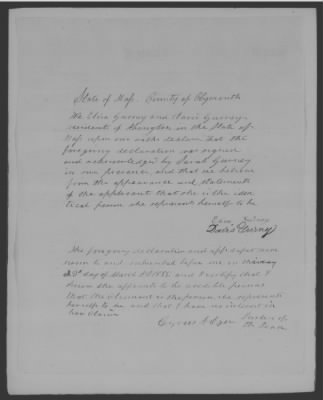 State of Mass. County of Plymouth
We Eliza Gurney and Davis Gurney
residents of Abington in the State of
Mass upon our oaths declare that the
foregoing declaration was signed
and acknowledged by Sarah Gurney
in our presence and that we believe
from the appearance and statements
of the applicant that she is the iden
tical person she represents herself to be.
Gurney
Davis Gurney
The foregoing declaration and affidavit were
sworn to and subscribed before me on
day of March AD 1855 and I certify that I
know the affiants to be credible persons
that the claimant is the person she represents
herself to be and that I have no interest in
this claim
Justice of
the Peace